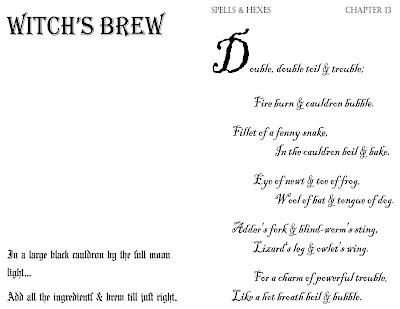 WITCH'S BREW
In a large black cauldron by the full moon
light...
Add all the ingredients & brew till just right.
SPELLS & HEXES
CHAPTER 13
Double, double toil & trouble;
Fire burn & cauldron bubble.
Fillet of a fenny snake,
In the cauldron boil & bake.
Eye of newt & toe of frog,
Wool of bat & tongue of dog.
Adder's fork & blind-worm's sting,
Lizard's leg & owlet's wing.
For a charm of powerful trouble,
Like a hot broth boil & bubble.